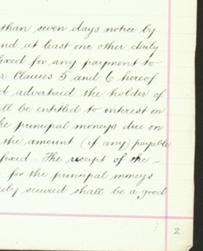 than seven days notice by
and at least one other daily
fixed for any payment to
r Clauses 5 and 6 hereof
d advertised the holder of
ll be entitled to interest on
he principal moneys due on
the amount (if any) payable
fixed. The receipt of the
for the principal moneys
eby secured shall be a good
2